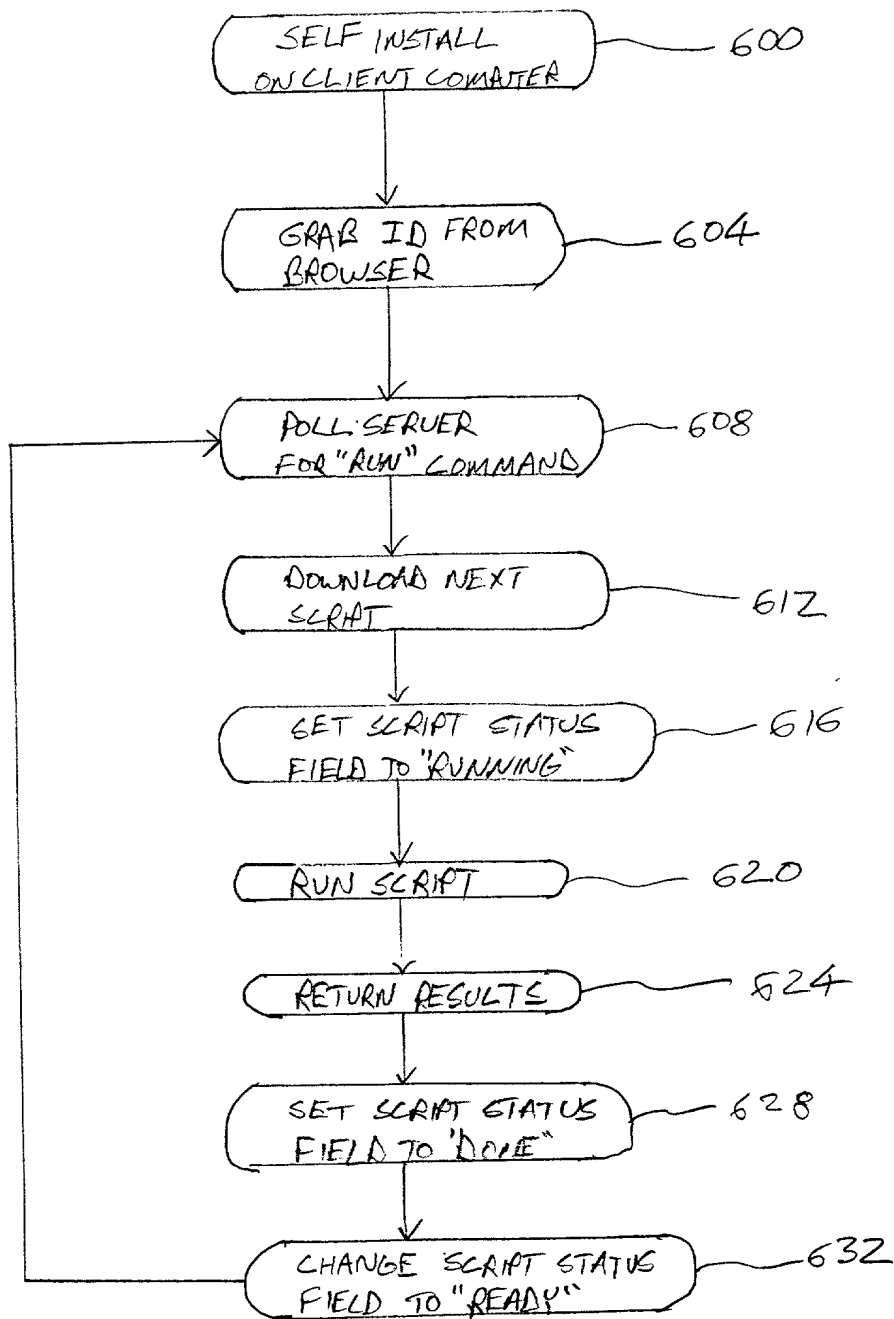 SELF INSTALL
600
ON CLIENT COMPUTER
GRAB ID FROM
604
BROWSER
POLL SERVER
608
FOR "RUN" COMMAND
DOWNLOAD NEXT
612
SCRIPT
SET SCRIPT STATUS
616
FIELD TO "RUNNING"
RUN SCRIPT
620
RETURN RESULTS
624
SET SCRIPT STATUS
628
FIELD TO "DONE"
CHANGE SCRIPT STATUS
632
FIELD TO "READY"